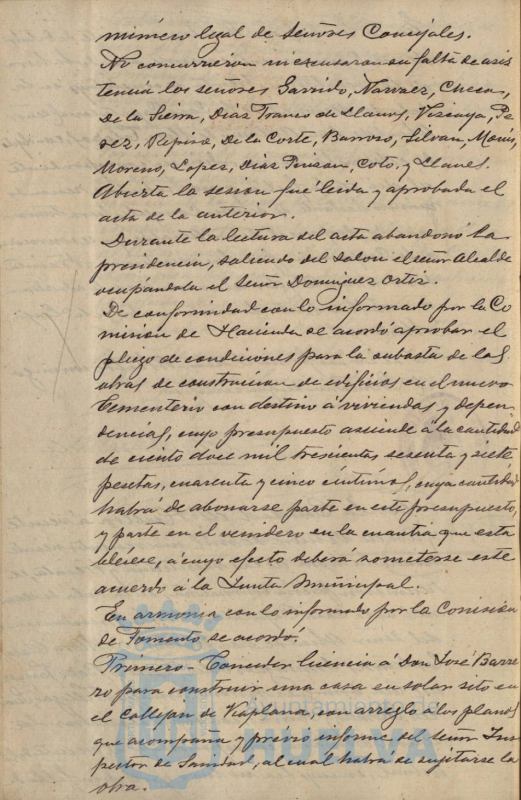 número legal de Señores Concejales.
No concurrieron ni excusaron su falta de asis
tencia los señores Garrido, Narvaez, Checa,
De la Sierra, Díaz Franco de Llanos, Vizcaya, Pe
rez, Repiso, De la Corte, Barroso, Silvan, Marín,
Moreno, Lopez, Díaz Pinzon, Coto, y Llanes.
Abierta la sesion fué leida y aprobada el
acta de la anterior.
Durante la lectura del acta abandonó la
presidencia, saliendo del Salon el señor Alcalde
ocupandola el Señor Dominguez Ortiz.
De conformidad con lo informado por la Co
mision de Hacienda se acordó aprobar el
pliego de condiciones para la subasta de las
obras de construccion de edificios en el nuevo
Cementerio con destino á viviendas y depen
dencias, cuyo presupuesto asciende á la cantidad
de ciento doce mil trescientas sesenta y siete
pesetas, cuarenta y cinco céntimos, cuya cantidad
habrá de abonarse parte en este presupuesto,
y parte en el venidero en la cuantia que esta
blece, á cuyo efecto deberá someterse este
acuerdo á la Junta Municipal.
En armonia con lo informado por la Comision
de Fomento se acordó:
Primero - Conceder licencia á Don José Barre
ro para construir una casa en solar sito en
el Callejon de Viaplana, con arreglo á los planos
que acompaña y prévio informe del Señor Ins
pector de Sanidad, al cual habrá de sujetarse la
obra.
Ayuntamiento de
HUELVA